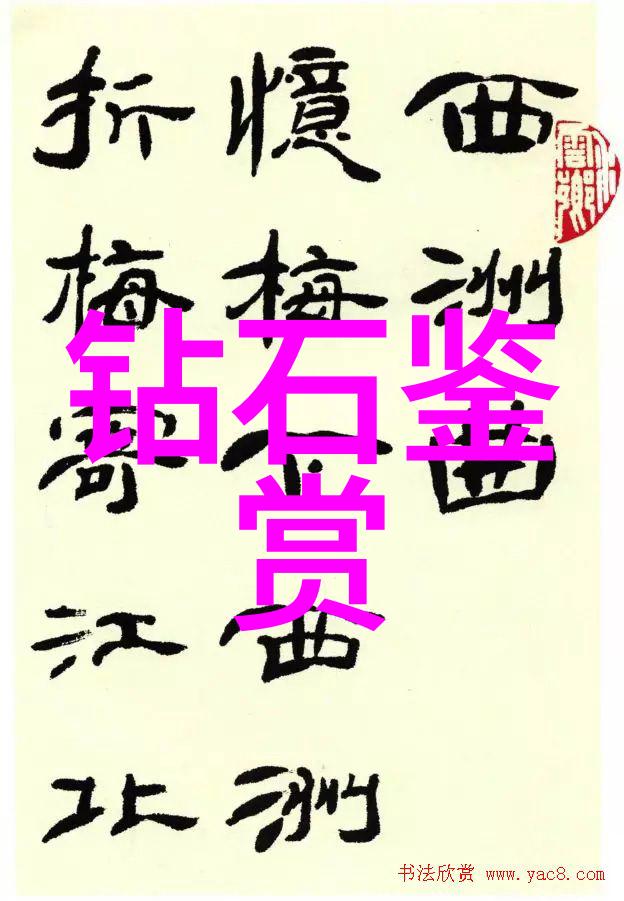 西洲曲
憶梅下西洲
折梅寄江北
钻石鉴
赏
书法欣赏 www.yac8.com